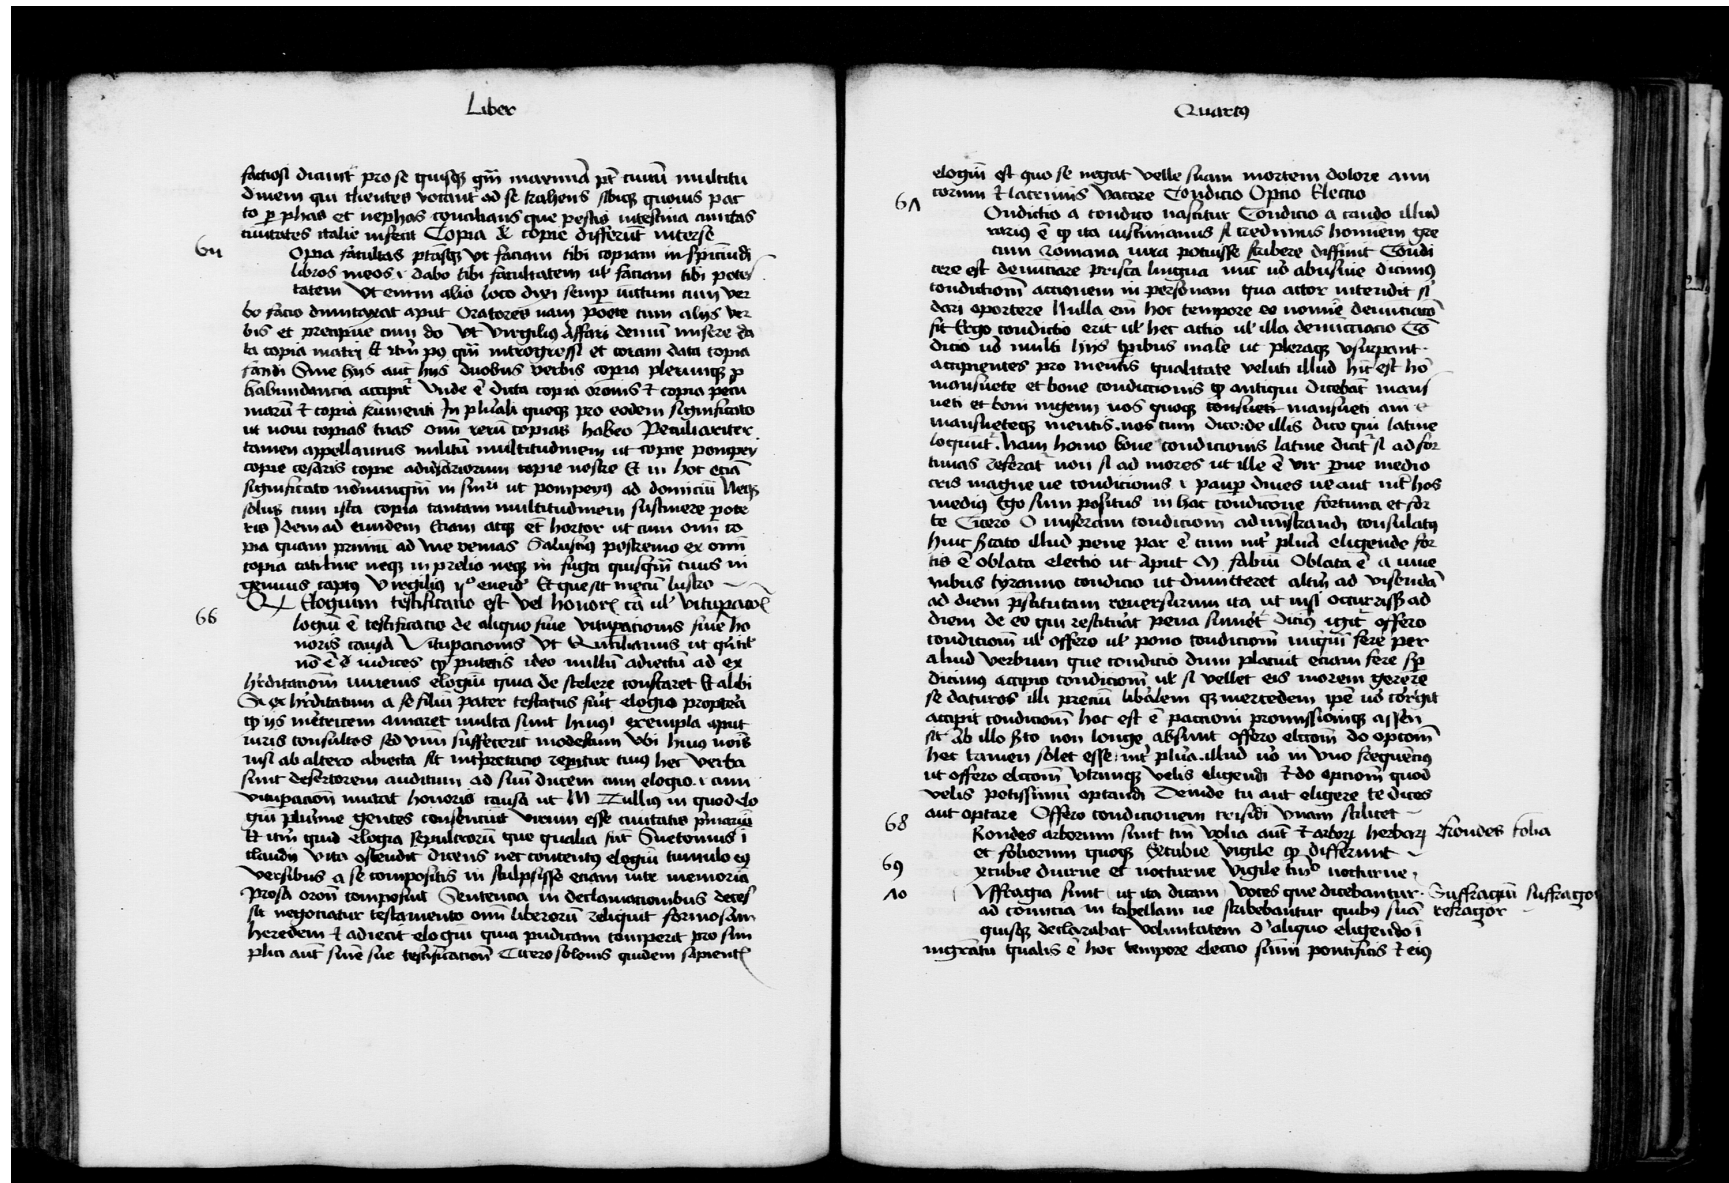 Liber
factiosi dicunt pro se quisq qm maximā pt ciuiū multitu
dinem qui clientes vocant ad se trahens sibiq quouis pac
to p phas et nephas concilians que pestis intestina cunctas
ciuitates italie infecit Copia & copie differūt inter se
6u
Opia facultas ptāsq ut faciam tibi copiam inspiciūdi
libros meos .i. dabo tibi facultatem ul faciam tibi potes
tatem Ut enim alio loco dixi semp iūctum cum ver
bo facio dumtaxat aput Oratores nam poete cum alijs ver
bis et precipue cum do Ut Virgilius Affari demū misere da
ta copia matri Et itm pq qm introgressi et coram data copia
fandi Sine hijs aut hijs duobus verbis copia plerunq p
habundancia accipit Unde ē dicta copia oronis & copia pecu
niarū & copia frumenti In plurali quoq pro eodem significato
ut noui copias tuas omi rerū copias habeo Peculiariter
tamen appellamus militū multitudinem ut copie pompey
copie cesaris copie adusariorum copie nostre Et in hoc eciā
significato nōnunqm in sinri ut pompeyq ad domiciū Neq
solus cum ista copia tantam multitudinem sustinere pote
ris Idem ad eundem Etiam atq et hortor ut cum omi co
pia quam primū ad me venias Salustiq postremo ex omi
copia catiline neq in prelio neq in fuga quisqm ciuis in
genuus captq Virgilius ijo eneid Et que sit mecū lustro
Q Elogium testificatio est vel honor cā ul vitupacō
66
logiū ē testificatio de aliquo siue vitupationis siue ho
noris causa Vitupacionis Ut Quitilianus ut qntil
nō ē ō iudices q putetis ideo nullū adiectū ad ex
hrditationi iuuenis elogiū quia de scelere constaret Et alibi
Si ex hrditatum a se filiū pater testatus fuit elogio proptea
q ijs mertricem amaret multa sunt hiuus exempla aput
iuris consultos sed unū suffecerit modestum ubi hiuus nois
nisi ab altero abiecta sit intpretacio reperitur cius hec verba
sunt desertorem auditum ad suū ducem cum elogio .i. cum
vitupacion mittat honoris causa ut M Tullius in quod elo
giū plurime gentes consenciut virum esse ciuitatis primariū
Et itm quid elogia sepulcrorū que qualia sut Suetonius i
claudij vita ostendit dicens nec contentus elogiū tumulo eq
versibus a se compositis in sculpsisse etiam uite memoria
prosa orōn composuit Sentencia in declamacionibus deces
sit negociatur testamento omi liberorū reliquit formosam
heredem & adiecit elogiū quia pudicam comperit pro sim
plici aut sine sue testificacioni Cicero solonis quidem sapient
Quartus
elogiū est quo se negat velle suam mortem dolore ami
corum & lacrimis vacare Condicio Optio Electio
6Λ
Ondictio a condico nascitur Condicio a condo illud
rarius ē q ita iustinianus si credimus hominem gre
cum romana iura potuisse scribere diffinit Condi
cere est denuciare prisca lingua nuc uō abusiue dicimq
condictionī accionem in personam qua actor intendit si
dari oportere Nulla enī hoc tempore eo nomine denuciatō
fit Ergo condictio erit ul hec actio ul illa denunciacio Cō
dicio uō multi hijs tpribus male ut pleraq usurpant
accipientes pro mentis qualitate veluti illud hic est hō
mansuete et bone condicionis q antiqui dicebāt mans
ueti et boni ingenij uos quoq consueti mansueti ani
mansueteq mentis .uos cum dico: de illis dico qui latine
loquūt . Nam homo bone condicionis latine dicit si ad for
tunas referat non si ad mores ut ille ē vir pne medio
cris magne ue condicionis .i. paup diues ue aut int hos
medius Ego sum positus in hac condicione fortuna et for
te Cicero O miseram condicionī administrandi consulatq
huic s̄cato illud pene par ē cum int plura eligende for
tis ē oblata electio ut aput M fabiū Oblata ē a iuue
nibus tyranno condicio ut dimitteret altm ad visendā
ad diem pstitutam reuersurum ita ut nisi occurrissz ad
diem de eo qui restituat pena sumet Dicius igit offero
condicionī ul offero ul pono condicionī nuqm fere per
aliud verbum que condicio dum placuit eciam fere sp
dicimus accipio condicionī ul si vellet eis morem gerere
se daturos illi preciū liberalem q mercedem ipe uō corrgit
accipit condicionī hoc est ē pacciom promissioniq assen
sit Ab illo s̄cto non longe absunt offero elccōm do optcōm
hec tamen solet esse int plura illud uō in uno frequēcius
ut offero elccōm vtrunq velis eligendi & do opcionī quod
velis potissimū optandi Deinde tu aut eligere te dices
aut optare Offero condicionem crisidi vnam scilicet
68
Rondes arborum sunt tm volia aut & arbor herbar
Frondes folia
et foborum quoq Excubie vigile q differunt
69
Xcubie diurne et nocturne Vigile tm nocturne
ΛO
Uffragia sunt ut ita dicam voces que dicebantur
Suffragiū suffragor
refragor
ad comicia in tabellam ue scribebantur quibq suā
quisq declarabat voluntatem d aliquo eligendo i
migratū qualis ē hoc tempore electio sumi pontificis & eiq